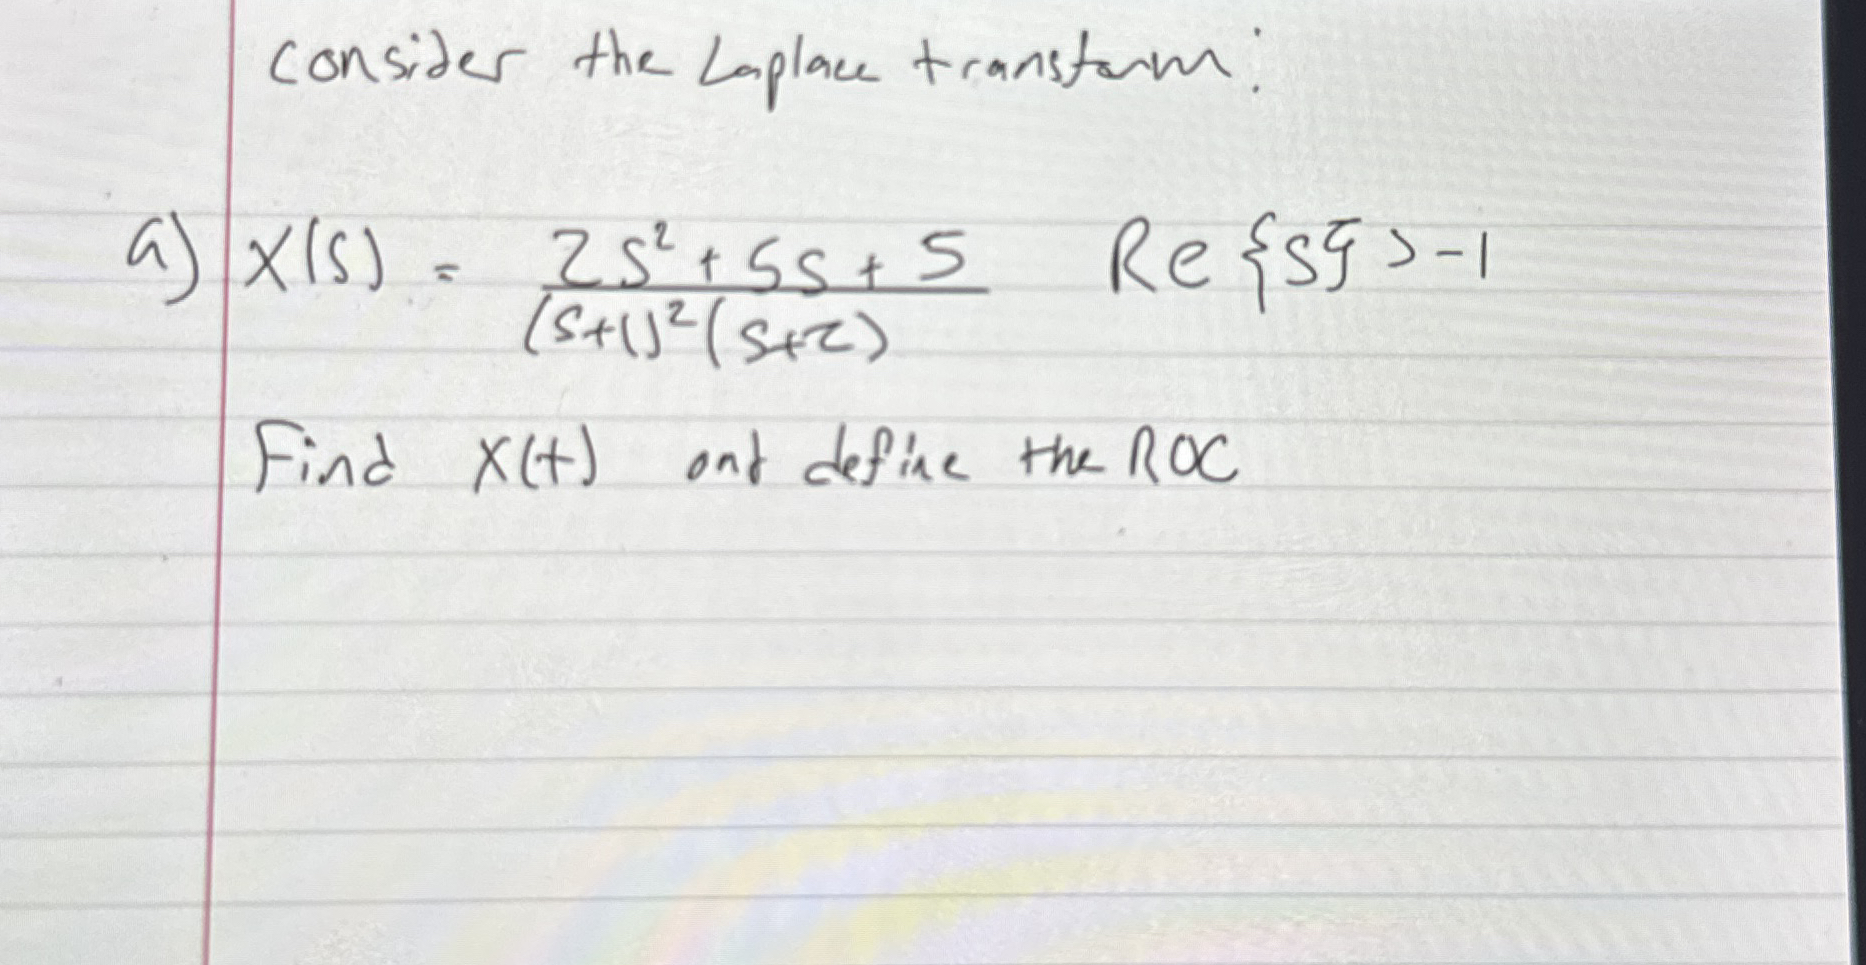 consider the Laplace transform:
a) X(s) = 2s² + 5s + 5 / (s+1)²(s+2) Re{s} > -1
Find x(t) and define the ROC